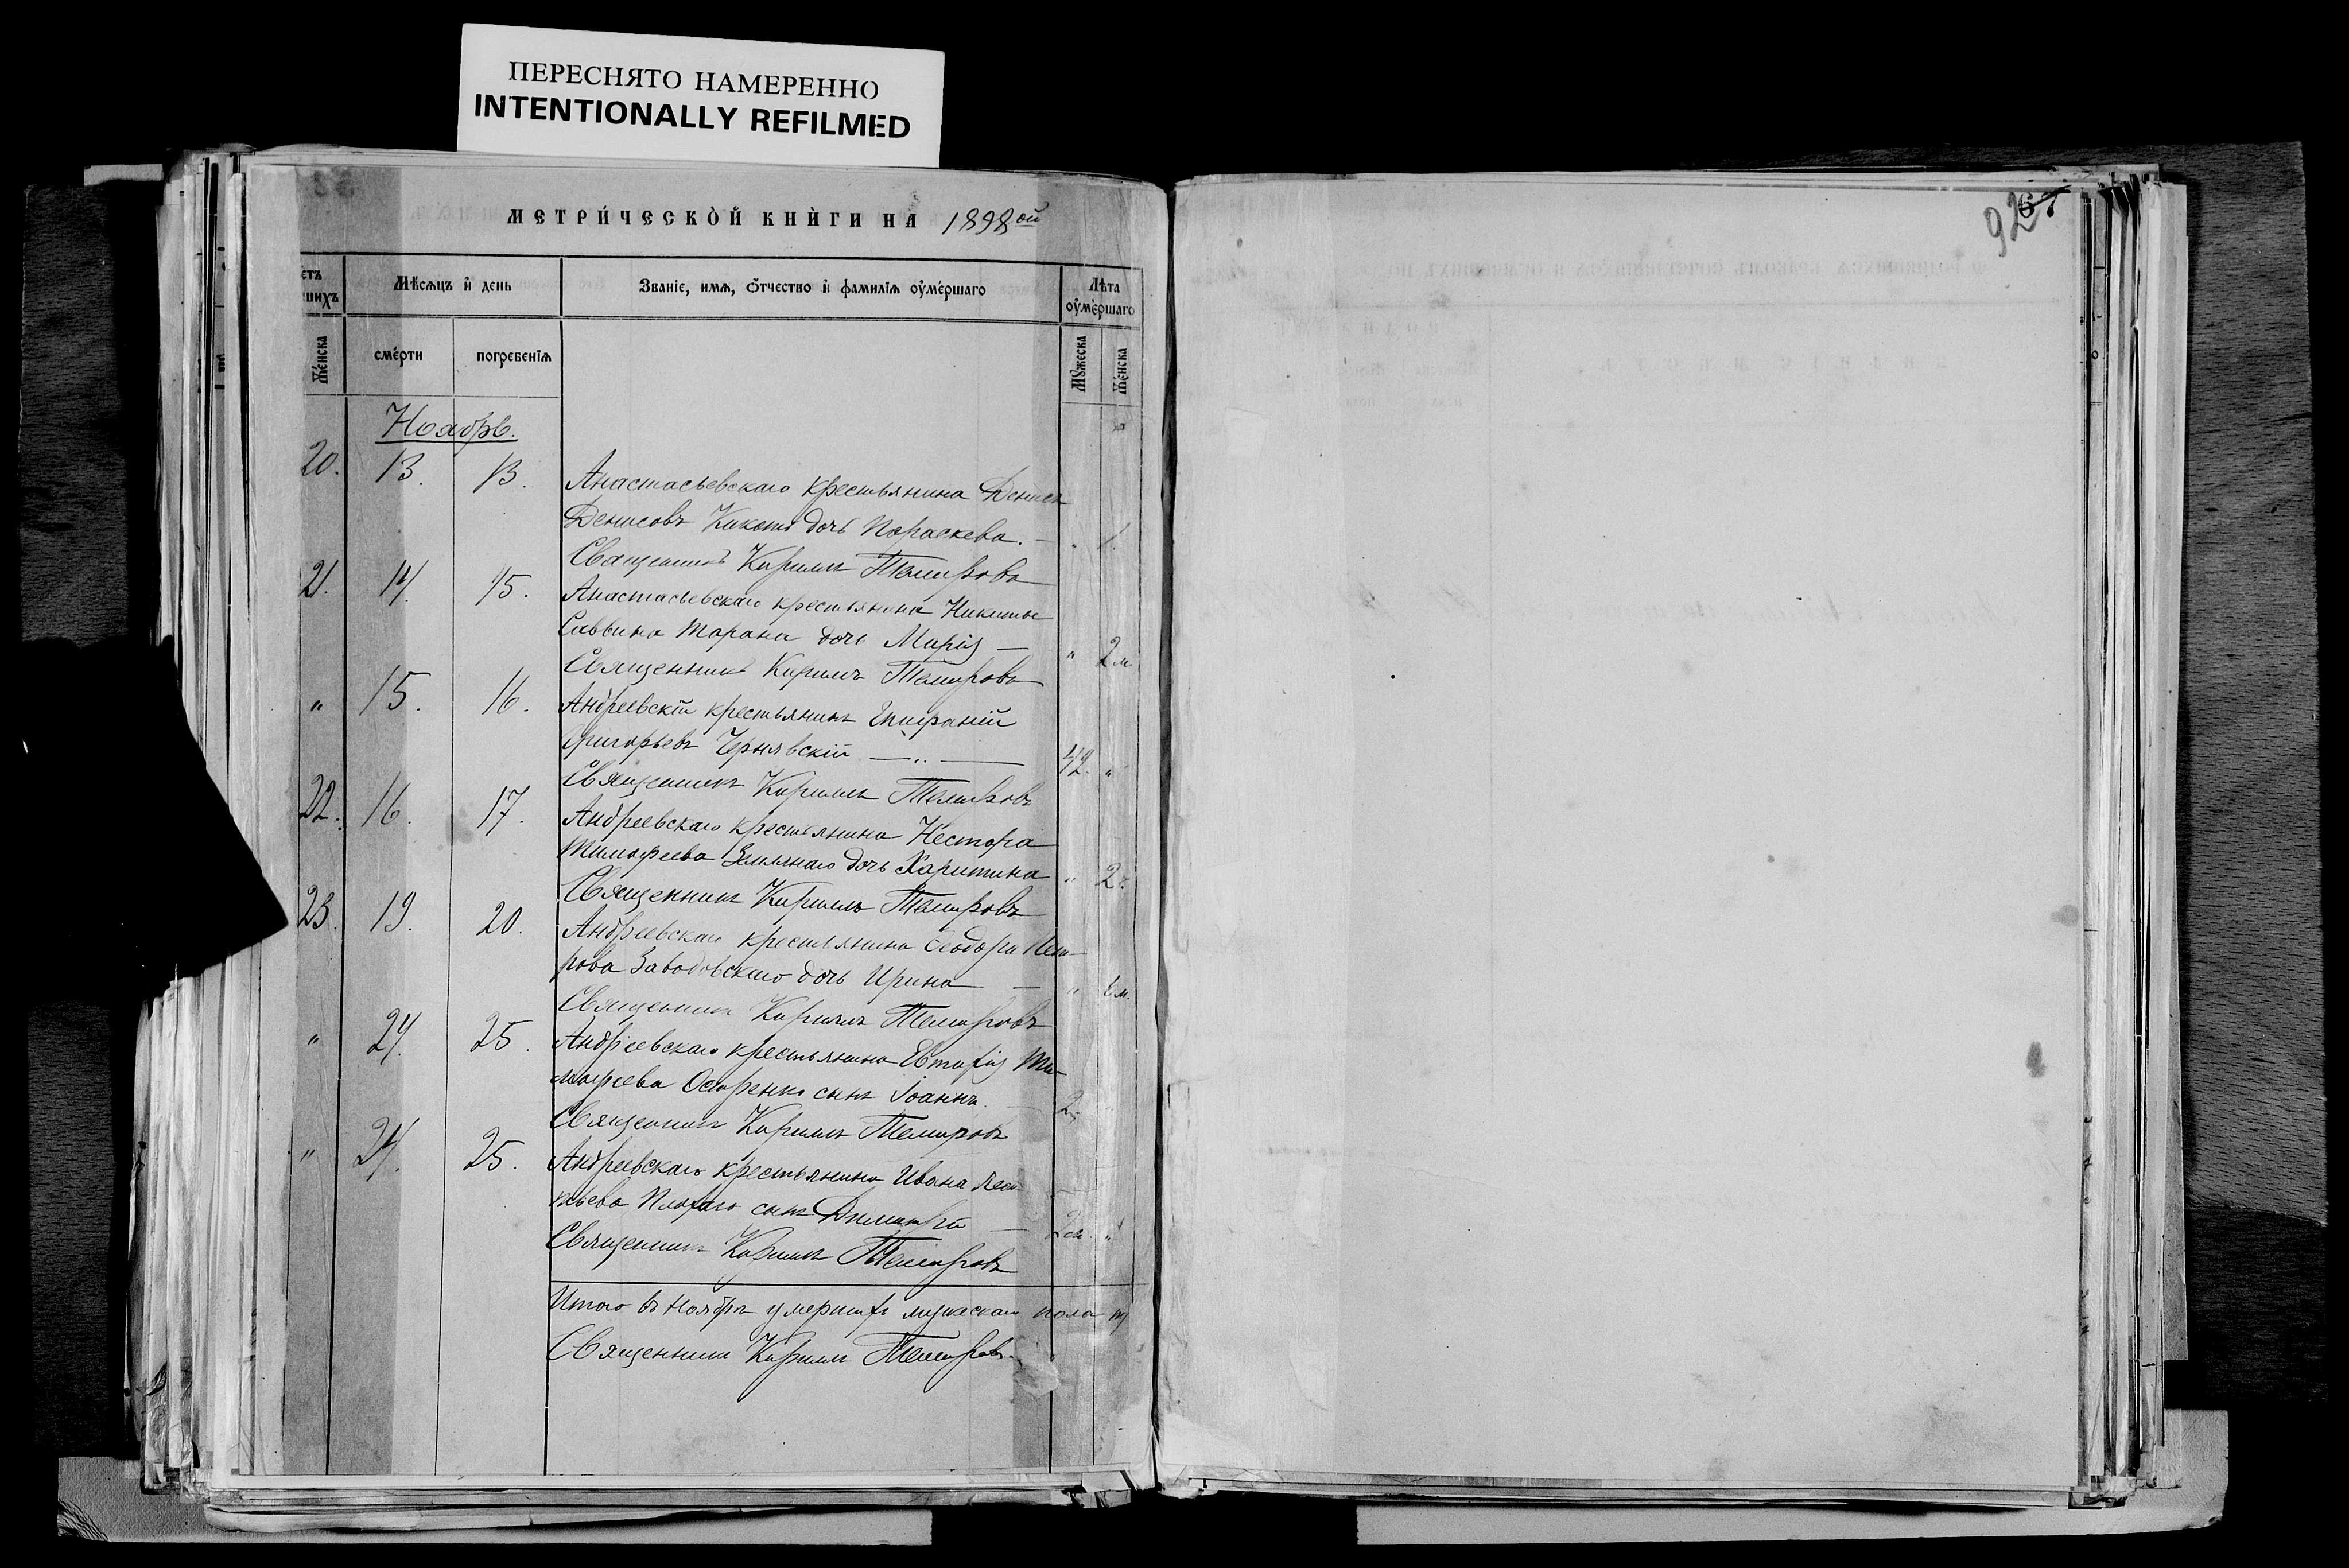 ПЕРЕСНЯТО НАМЕРЕННО
INTENTIONALLY REFILMED
МЕТРИ́ЧЕСКОЙ КНИ́ГИ НА 1898ой
92 67
етъ
шихъ
Мѣсѧцъ и҆ день
Званіе, имѧ, ѿтчество и҆ фамиліѧ оу҆ме́ршаго
Лѣта
оу҆ме́ршаго
Же́нска
сме́рти
погребеніѧ
Мꙋ́жеска
Же́нска
Ноябрь.
20. 13. 13. Анастасьевскаго крестьянина Дениса
Денисовъ Кикотя дочь Параскева. — " 1.
Священникъ Кириллъ Темировъ
21. 14. 15. Анастасьевскаго крестьянина Никиты
Саввина Тарана дочь Марія — " 2 м
Священникъ Кириллъ Темировъ
" 15. 16. Андреевскій крестьянинъ Епифаній
Григорьевъ Чернявскій — " — 42. "
Священникъ Кириллъ Темировъ
22. 16. 17. Андреевскаго крестьянина Нестора
Тимофеева Землянаго дочь Харитина " 2
Священникъ Кириллъ Темировъ
23. 19. 20. Андреевскаго крестьянина Ѳеодора Пет-
рова Заводовскаго дочь Ирина — " м.
Священникъ Кириллъ Темировъ
" 24. 25. Андреевскаго крестьянина Ти-
мофеева сынъ Іоаннъ. — 2
Священникъ Кириллъ Темировъ
" 24. 25. Андреевскаго крестьянина Ивана
сынъ Димитрій — "
Священникъ Кириллъ Темировъ
Итого въ Ноябрѣ умершихъ мужескаго пола
Священникъ Кириллъ Темировъ.